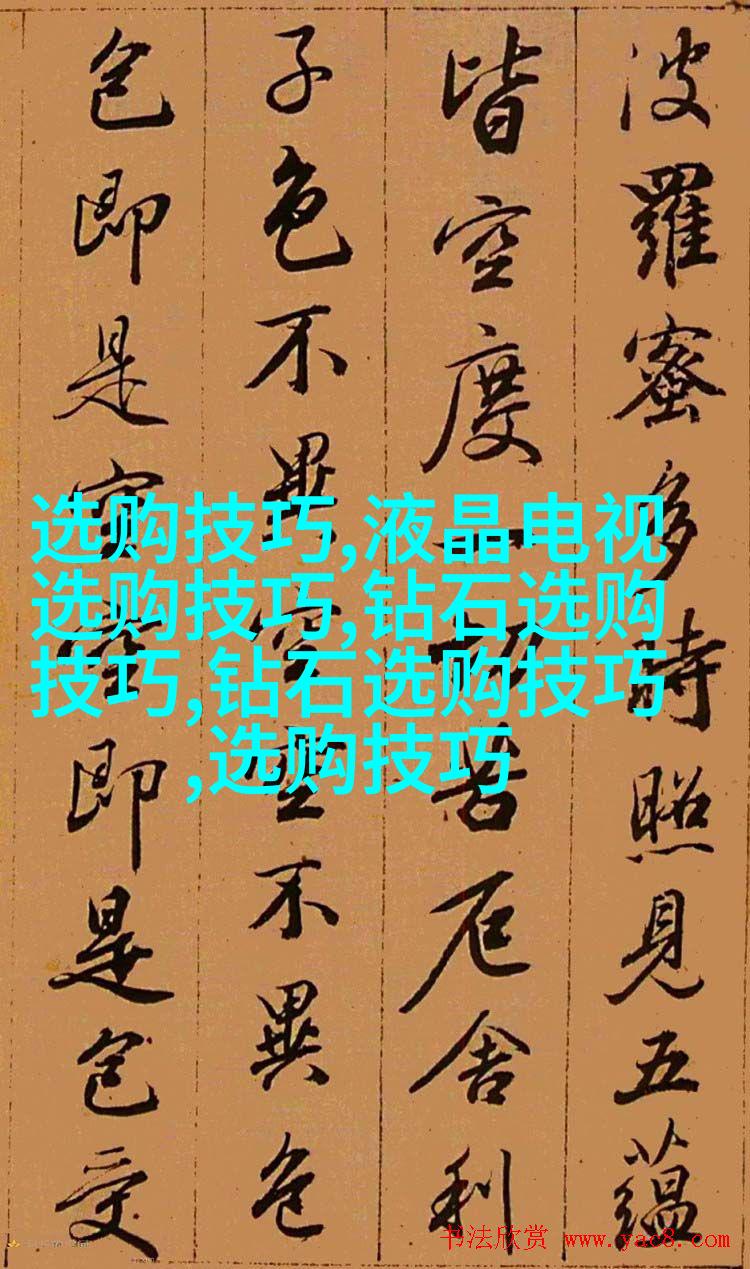 波羅蜜多時照見五蘊
皆空度一切苦厄舍利
子色不異空空不異色
色即是空空即是色受
选购技巧,液晶电视
选购技巧,钻石选购
技巧,钻石选购技巧
,选购技巧
书法欣赏 www.yac8.com